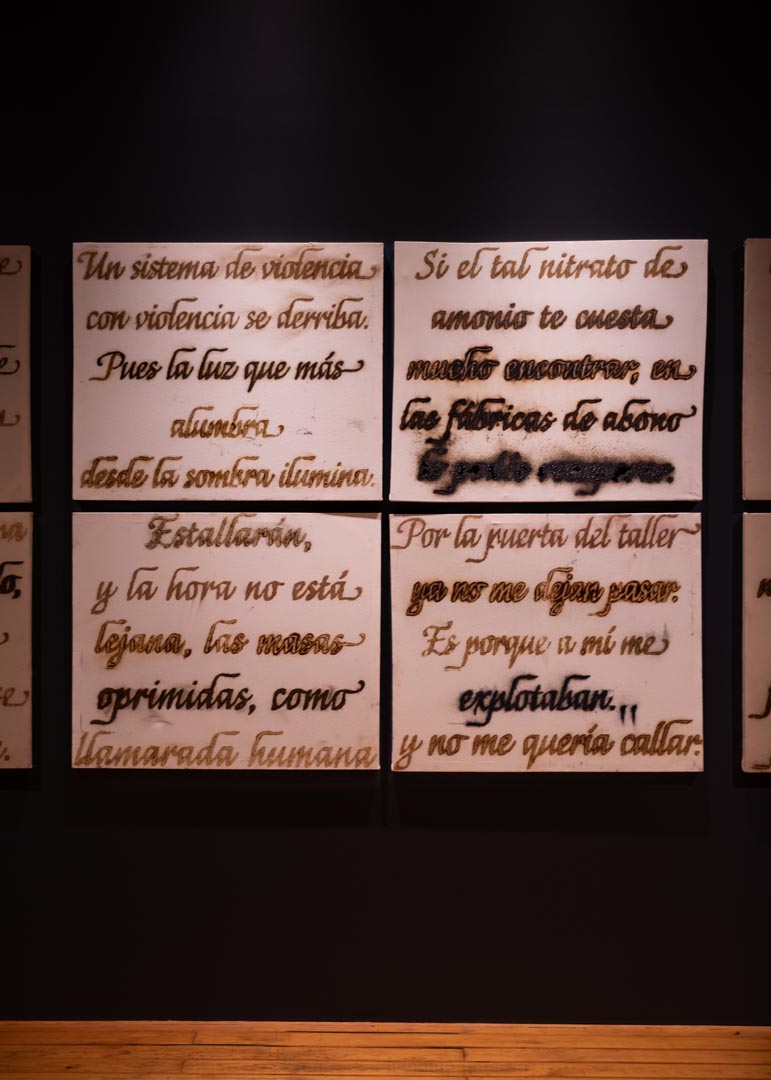 Un sistema de violencia
con violencia se derriba.
Pues la luz que más
alumbra
desde la sombra ilumina.
Si el tal nitrato de
amonio te cuesta
mucho encontrar, en
las fábricas de abono
lo podés recuperar.
Estallarán,
y la hora no está
lejana, las masas
oprimidas, como
llamarada humana
Por la puerta del taller
ya no me dejan pasar.
Es porque a mí me
explotaban...
y no me quería callar.